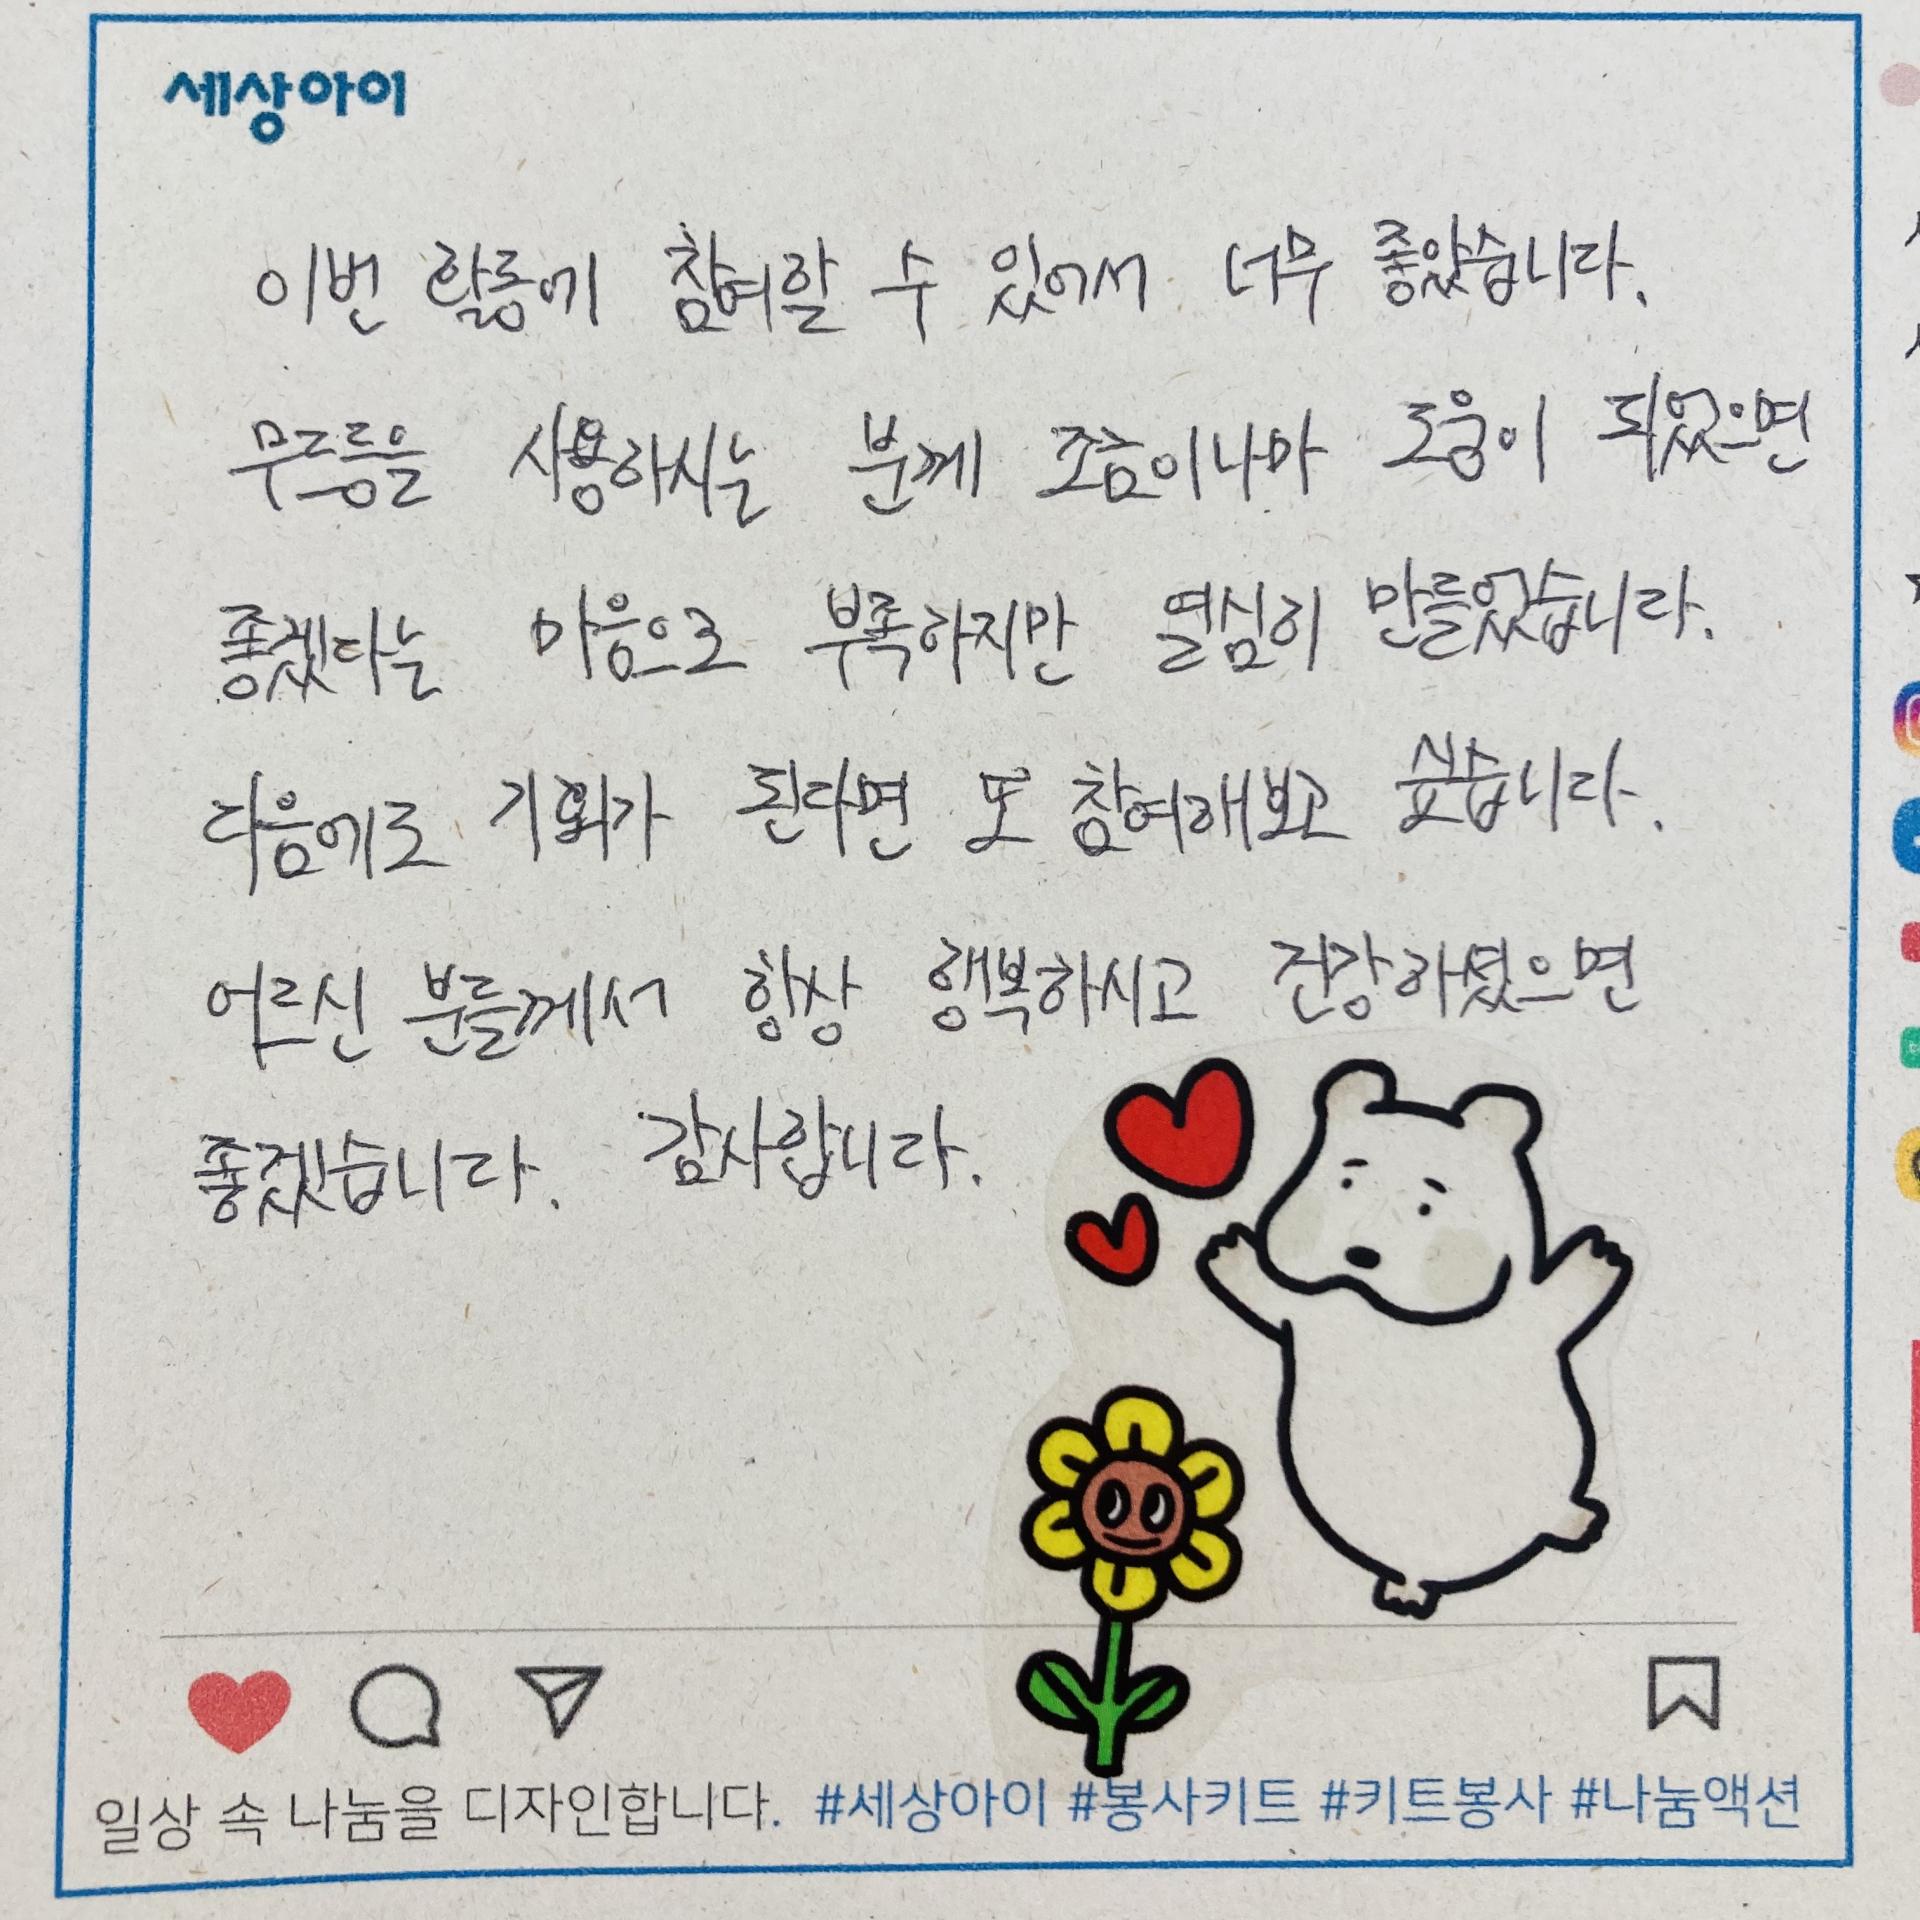 세상아이
이번 활동에 참여할 수 있어서 너무 좋았습니다.
무드등을 사용하시는 분께 조금이나마 도움이 되었으면
좋겠다는 마음으로 부족하지만 열심히 만들었습니다.
다음에도 기회가 된다면 또 참여해보고 싶습니다.
어르신 분들께서 항상 행복하시고 건강하셨으면
좋겠습니다. 감사합니다.
일상 속 나눔을 디자인합니다. #세상아이 #봉사키트 #키트봉사 #나눔액션